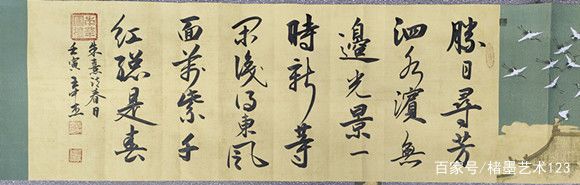 勝日尋芳
泗水濱無
邊光景一
時新等
閒識得東風
面萬紫千
紅總是春
朱熹诗春日
壬寅
百家号/楮墨艺术123